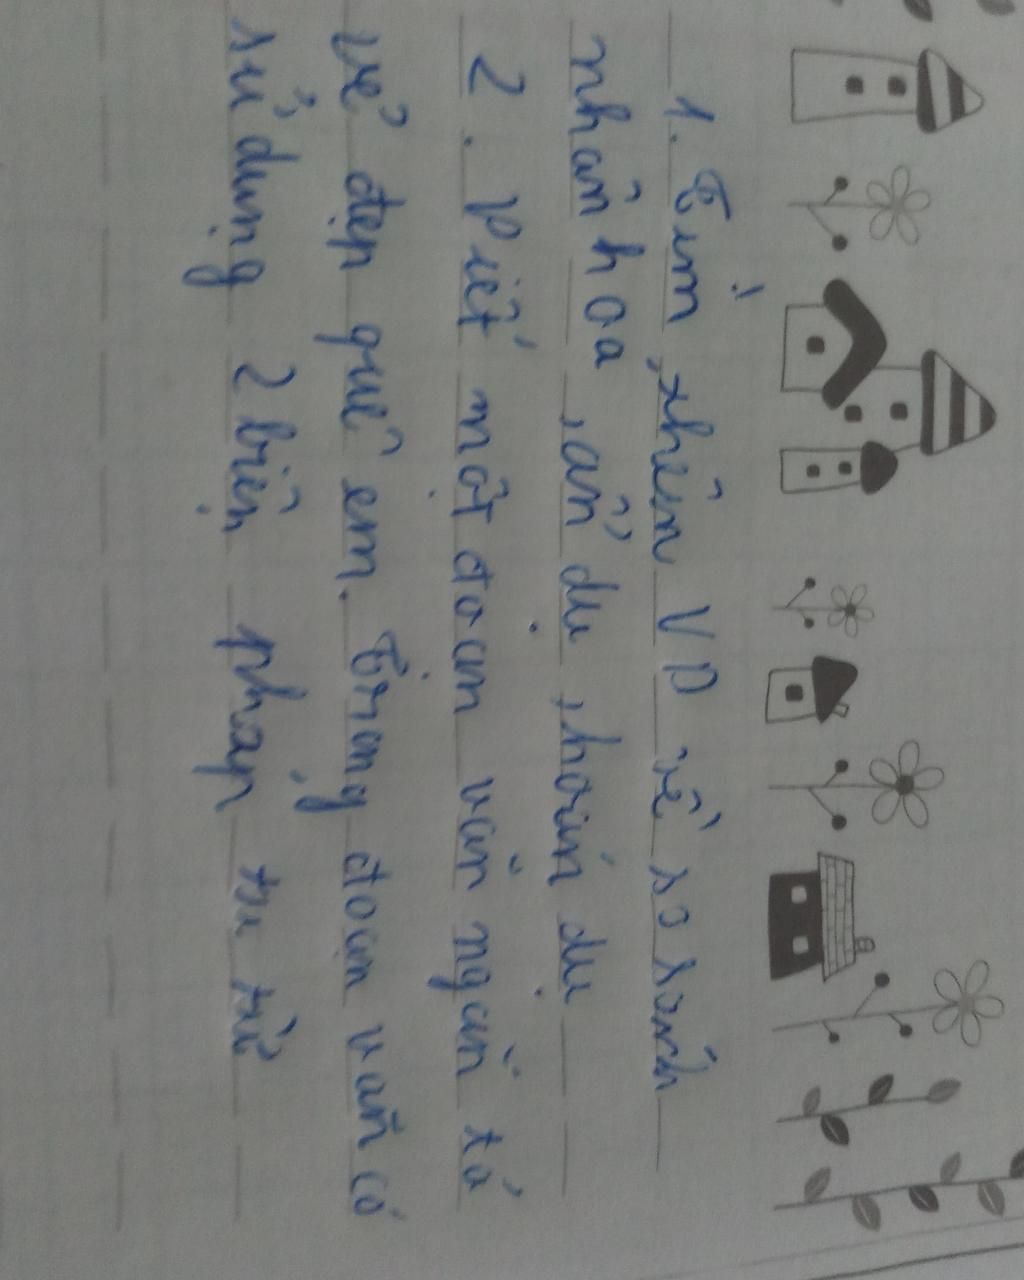 1. Tìm thêm VD về so sánh
nhân hoá, ẩn dụ, hoán dụ
2. Viết một đoạn văn ngắn tả
vẻ đẹp quê em. Trong đoạn văn có
sử dụng 2 biện pháp tu từ